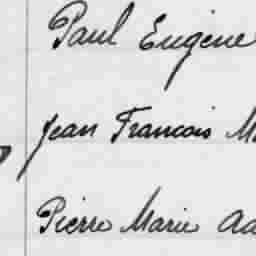 Paul Eugène
Jean Francois
Pierre Marie